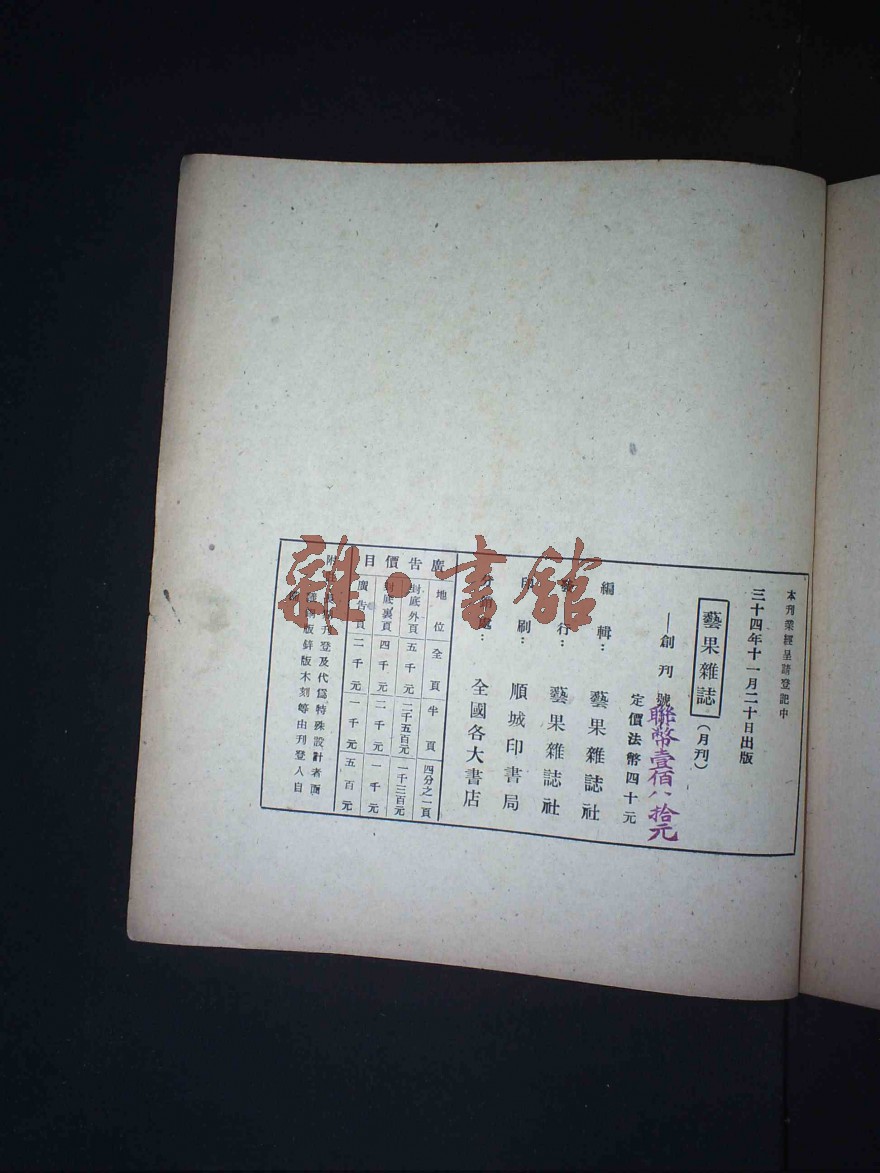 本刊業經呈請登記中
三十四年十一月二十日出版
藝果雜誌(月刊)
—創刊號
聯幣壹佰八拾元
定價法幣四十元
編輯：藝果雜誌社
發行：藝果雜誌社
印刷：順城印書局
分銷處：全國各大書店
廣告價目
地位 全頁 半頁 四分之一頁
封底外頁 五千元 二千五百元 一千三百元
封底裏頁 四千元 二千元 一千元
廣告頁 二千元 一千元 五百元
刊登及代爲特殊設計者
版鋅版木刻等由刊登人自
雜·書館